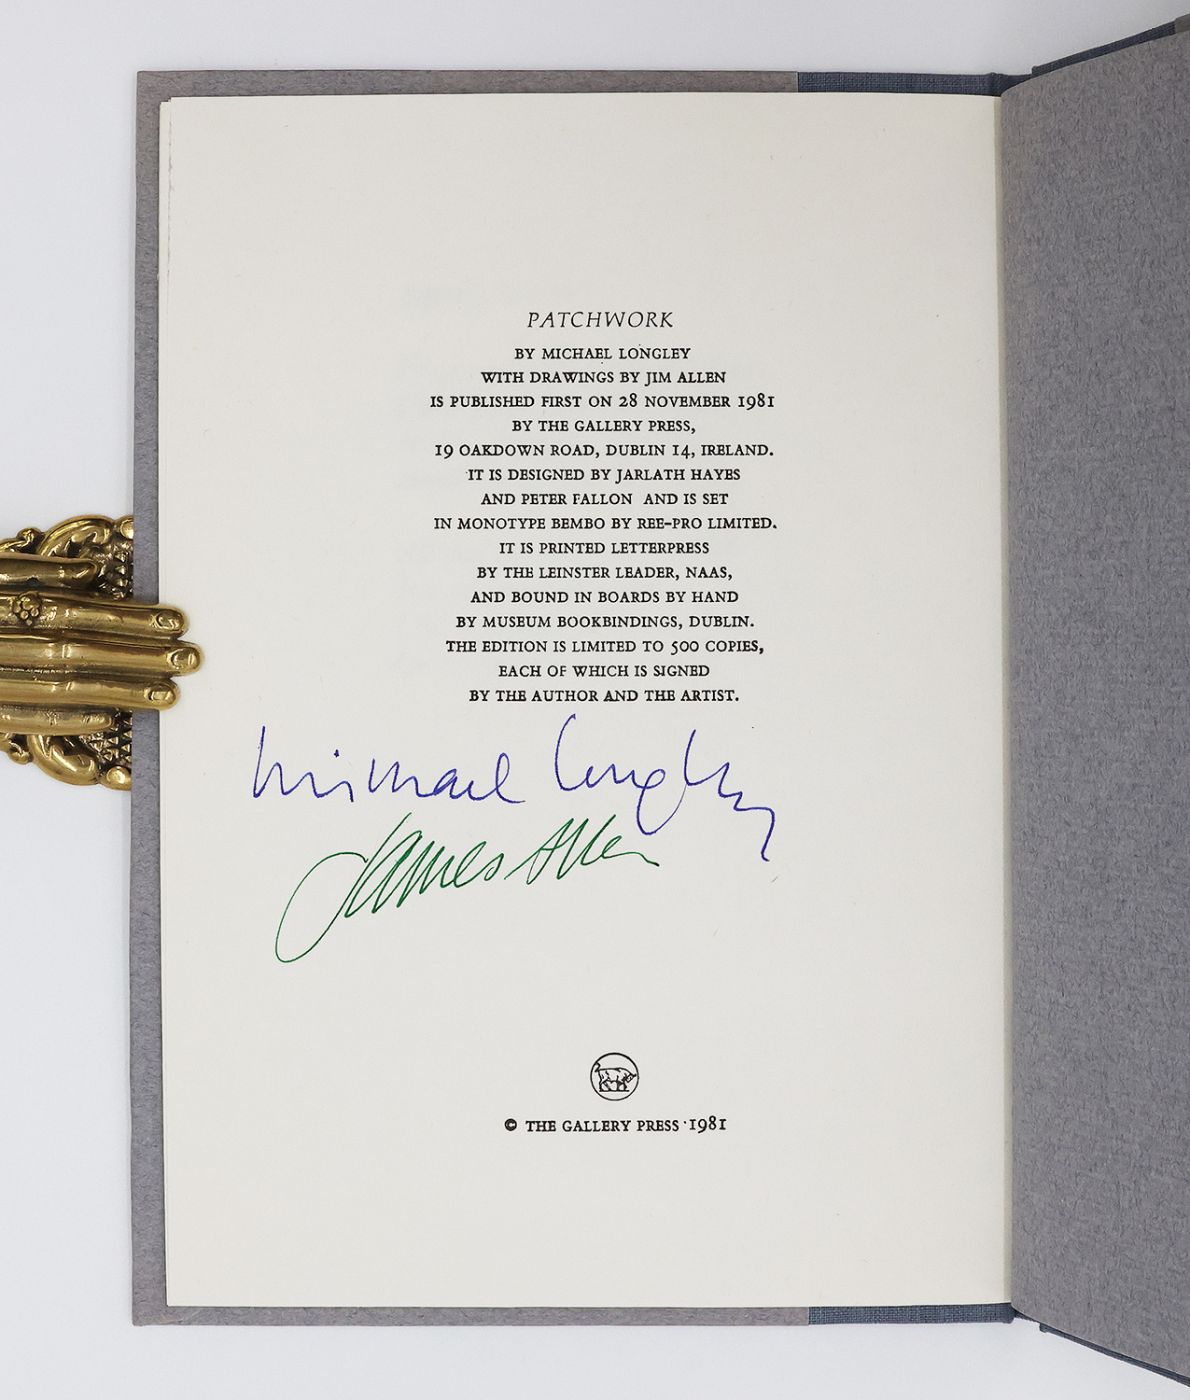 PATCHWORK
BY MICHAEL LONGLEY
WITH DRAWINGS BY JIM ALLEN
IS PUBLISHED FIRST ON 28 NOVEMBER 1981
BY THE GALLERY PRESS,
19 OAKDOWN ROAD, DUBLIN 14, IRELAND.
IT IS DESIGNED BY JARLATH HAYES
AND PETER FALLON AND IS SET
IN MONOTYPE BEMBO BY REE-PRO LIMITED.
IT IS PRINTED LETTERPRESS
BY THE LEINSTER LEADER, NAAS,
AND BOUND IN BOARDS BY HAND
BY MUSEUM BOOKBINDINGS, DUBLIN.
THE EDITION IS LIMITED TO 500 COPIES,
EACH OF WHICH IS SIGNED
BY THE AUTHOR AND THE ARTIST.
Michael Longley
James Allen
© THE GALLERY PRESS 1981